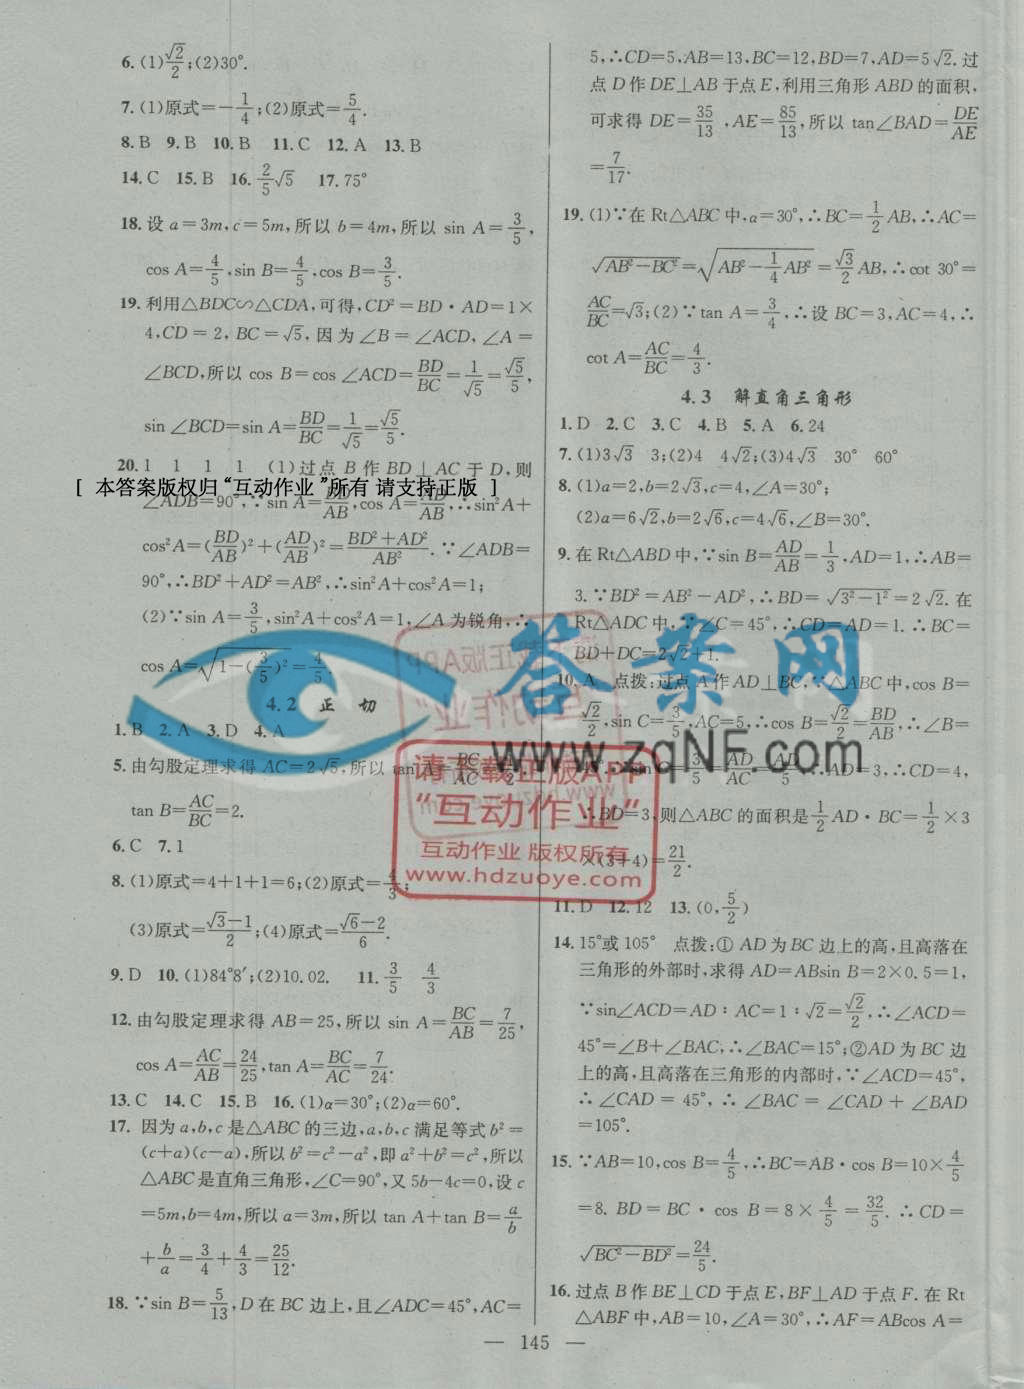 6. (1)√2/2;(2)30°.
7. (1)原式=-1/4;(2)原式=5/4.
8. B 9. B 10. B 11. C 12. A 13. B
14. C 15. B 16. 2/5√5 17. 75°
18. 设 a=3m,c=5m,所以 b=4m,所以 sin A=3/5,
cos A=4/5,sin B=4/5,cos B=3/5.
19. 利用△BDC∽△CDA,可得,CD²=BD·AD=1×
4,CD=2,BC=√5,因为∠B=∠ACD,∠A=
∠BCD,所以 cos B=cos ∠ACD=BD/BC=1/√5=√5/5,
sin ∠BCD=sin A=BD/BC=1/√5=√5/5.
20. 1 1 1 1 (1)过点 B 作 BD⊥AC 于 D,则
[ 本答案版权归“互动作业”所有 请支持正版 ]
∠ADB=90°,∵sin A=BD/AB,cos A=AD/AB,∴sin²A+
cos²A=(BD/AB)²+(AD/AB)²=BD²+AD²/AB².∵∠ADB=
90°,∴BD²+AD²=AB²,∴sin²A+cos²A=1;
(2)∵sin A=3/5,sin²A+cos²A=1,∠A 为锐角,∴
cos A=√1-(3/5)²=4/5.
4.2 正 切
1. B 2. A 3. D 4. A
5. 由勾股定理求得 AC=2√5,所以 tan A=BC/AC=
tan B=AC/BC=2.
6. C 7. 1
8. (1)原式=4+1+1=6;(2)原式=4/3;
(3)原式=√3-1/2;(4)原式=√6-2/6.
9. D 10. (1)84°8′;(2)10.02. 11. 3/5 4/3
12. 由勾股定理求得 AB=25,所以 sin A=BC/AB=7/25,
cos A=AC/AB=24/25,tan A=BC/AC=7/24.
13. C 14. C 15. B 16. (1)α=30°;(2)α=60°.
17. 因为 a,b,c 是△ABC 的三边,a,b,c 满足等式 b²=
(c+a)(c-a),所以 b²=c²-a²,即 a²+b²=c²,所以
△ABC 是直角三角形,∠C=90°,又 5b-4c=0,设 c
=5m,b=4m,所以 a=3m,所以 tan A+tan B=a/b
+b/a=3/4+4/3=25/12.
18. ∵sin B=5/13,D 在 BC 边上,且∠ADC=45°,AC=
5,∴CD=5,AB=13,BC=12,BD=7,AD=5√2.过
点 D 作 DE⊥AB 于点 E,利用三角形 ABD 的面积,
可求得 DE=35/13,AE=85/13,所以 tan∠BAD=DE/AE
=7/17.
19. (1)∵在 Rt△ABC 中,α=30°,∴BC=1/2AB,∴AC=
√AB²-BC²=√AB²-1/4AB²=√3/2AB,∴cot 30°=
AC/BC=√3;(2)∵tan A=3/4,∴设 BC=3,AC=4,∴
cot A=AC/BC=4/3.
4.3 解直角三角形
1. D 2. C 3. C 4. B 5. A 6. 24
7. (1)3√3 3;(2)4 4√2;(3)4√3 30° 60°
8. (1)a=2,b=2√3,c=4,∠A=30°;
(2)a=6√2,b=2√6,c=4√6,∠B=30°.
9. 在 Rt△ABD 中,∵sin B=AD/AB=1/3,AD=1,∴AB=
3.∵BD²=AB²-AD²,∴BD=√3²-1²=2√2.在
Rt△ADC 中,∵∠C=45°,∴CD=AD=1.∴BC=
BD+DC=2√2+1.
10. A 点拨:过点 A 作 AD⊥BC,∵△ABC 中,cos B=
√2/2,sin C=3/5,AC=5,∴cos B=√2/2=BD/AB,∴∠B=
sin C=3/5=AD/AC=AD/5,∴CD=4,
∴BD=3,则△ABC 的面积是1/2AD·BC=1/2×3
×(3+4)=21/2.
11. D 12. 12 13. (0,5/2)
14. 15°或 105° 点拨:① AD 为 BC 边上的高,且高落在
三角形的外部时,求得 AD=ABsin B=2×0.5=1,
∵sin∠ACD=AD∶AC=1∶√2=√2/2,∴∠ACD=
45°=∠B+∠BAC,∴∠BAC=15°;②AD 为 BC 边
上的高,且高落在三角形的内部时,∵∠ACD=45°,
∴∠CAD=45°,∴∠BAC=∠CAD+∠BAD
=105°.
15. ∵AB=10,cos B=4/5,∴BC=AB·cos B=10×4/5
=8. BD=BC·cos B=8×4/5=32/5.∴CD=
√BC²-BD²=24/5.
16. 过点 B 作 BE⊥CD 于点 E,BF⊥AD 于点 F.在 Rt
△ABF 中,AB=10,∠A=30°,∴AF=ABcos A=
— 145 —
答案网
www.zqNF.com
请下载正版APP
“互动作业”
互动作业 版权所有
www.hdzuoye.com